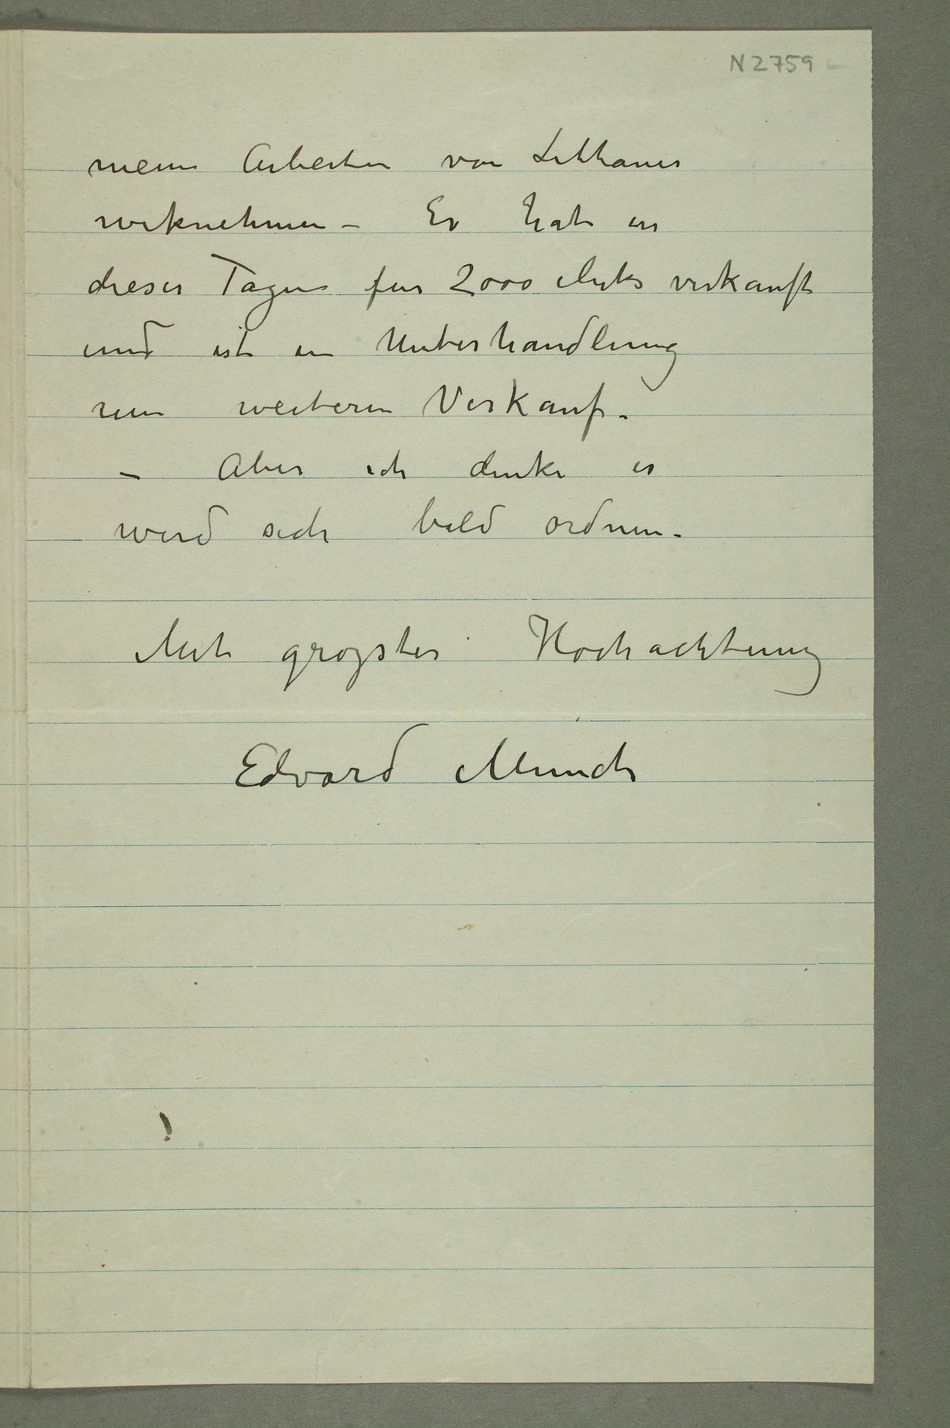 N 2759
meine Arbeiten von Lithauer
weknehmen – Er hat in
dieser Tagen für 2000 Mks verkauft
und ist in Unterhandlung
um weiteren Verkauf.
– Aber ich denke es
wird sich bald ordnen.
Mit grozster Hochachtung
Edvard Munch